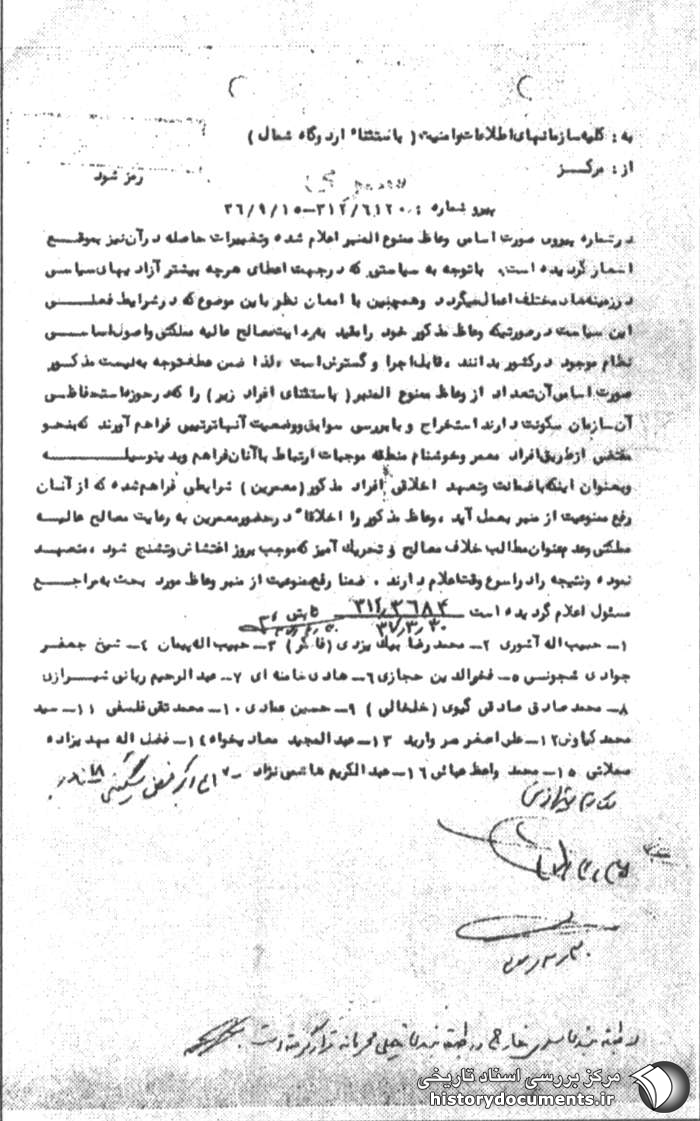 به : کلیه سازمانهای اطلاعات و امنیت ( باستثناء اردوگاه شمال )
از : مرکز
رمز شود
پیرو شماره : ۳۱۲/۶۱۲۰-۳۶/۹/۱۵
در شماره پیروی صورت اسامی وعاظ ممنوع المنبر اعلام شده و تغییرات حاصله در آن نیز بموقع
اشعار گردیده است. باتوجه به سیاستی که در جهت اعطای هرچه بیشتر آزادیهای سیاسی
در زمینه های مختلف اعمال میگردد و همچنین با امعان نظر باین موضوع که در شرایط فعلی
این سیاست در صورتیکه وعاظ مذکور خود را مقید به رعایت مصالح عالیه مملکتی و اصول اساسی
نظام موجود در کشور بدانند ، قابل اجرا و گسترش است ، لذا ضمن عطف توجه به لیست مذکور
صورت اسامی آن تعداد از وعاظ ممنوع المنبر ( باستثنای افراد زیر ) را که در حوزه استحفاظی
آن سازمان سکونت دارند استخراج و با بررسی سوابق و وضعیت آنها ترتیبی فراهم آورند که بنحو
مقتضی از طریق افراد معمر و خوشنام منطقه موجبات ارتباط با آنان فراهم و بدینوسیله
و بعنوان اینکه با ضمانت و تعهد اخلاقی افراد مذکور ( معمرین ) شرایطی فراهم شده که از آنان
رفع ممنوعیت از منبر بعمل آید ، وعاظ مذکور را اخلاقا در حضور معمرین به رعایت مصالح عالیه
مملکتی و عدم عنوان مطالب خلاف مصالح و تحریک آمیز که موجب بروز اغتشاش و تشنج شود ، متعهد
نموده و نتیجه را در اسرع وقت اعلام دارند . ضمنا رفع ممنوعیت از منبر وعاظ مورد بحث به مراجع
مسئول اعلام گردیده است ۳۱۲/۳۶۸۴ ثابتی
۳۷/۳/۳۰
۱- حبیب اله آشوری ۲- محمد رضا بیک یزدی (فاکر) ۳- حبیب اله پیمان ۴- شیخ جعفر
جوادی شجونسی ۵- فخرالدین حجازی ۶- هادی خامنه ای ۷- عبدالرحیم ربانی شیرازی
۸- محمد صادق صادقی گیوی (خلخالی) ۹- حسین عمادی ۱۰- محمد تقی فلسفی ۱۱- سید
محمد کیاوش ۱۲- علی اصغر مروارید ۱۳- عبدالمجید معادیخواه ۱۴- فضل اله مهدیزاده
محلاتی ۱۵- محمد واعظ عبائی ۱۶- عبدالکریم هاشمی نژاد ۱۷-
۱۸ ناصر
مکارم شیرازی
از طبقه بندی خارج در طبقه بندی خیلی محرمانه قرار گرفته است
مرکز بررسی اسناد تاریخی
historydocuments.ir